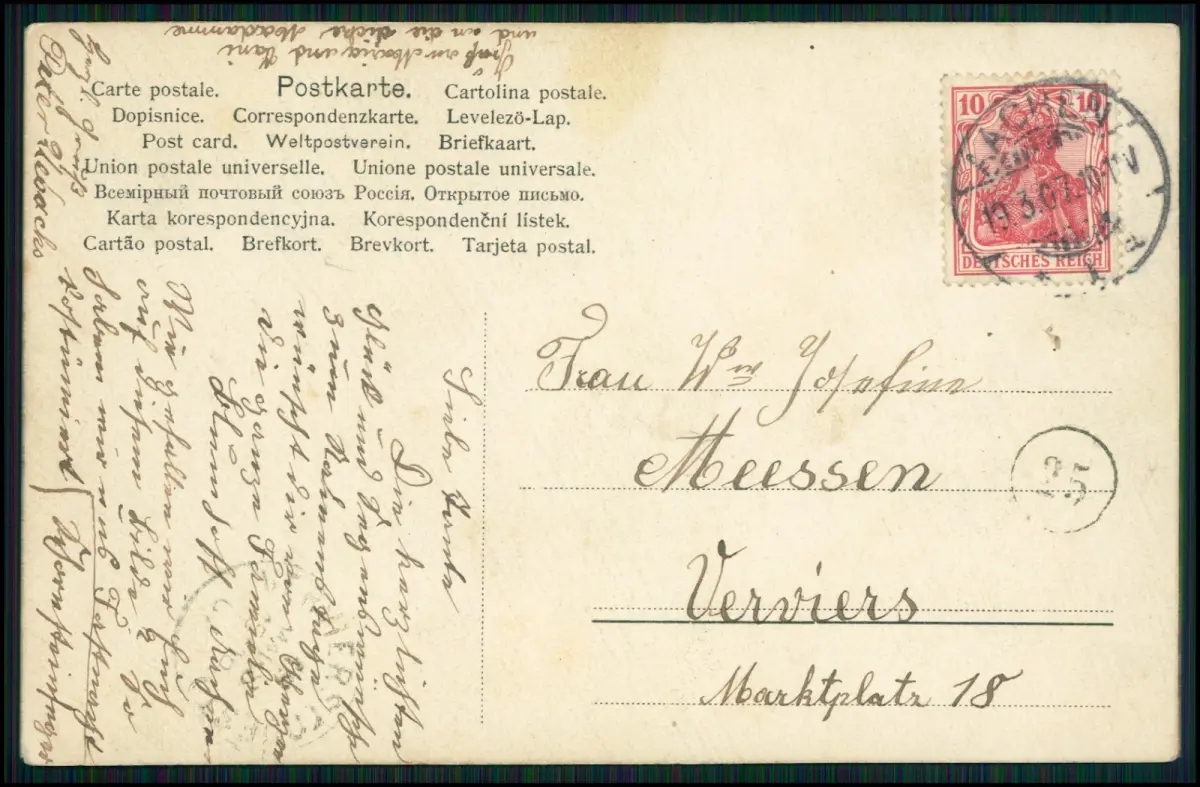 Carte postale. Postkarte. Cartolina postale.
Dopisnice. Correspondenzkarte. Levelező-Lap.
Post card. Weltpostverein. Briefkaart.
Union postale universelle. Unione postale universale.
Всемірный почтовый союзъ Россія. Открытое письмо.
Karta korespondencyjna. Korespondenční lístek.
Cartão postal. Brefkort. Brevkort. Tarjeta postal.
10 10
DEUTSCHES REICH
AACHEN
19.3.07.10-11V
Frau Wwe Josefine
Meessen
25
Verviers
Marktplatz 18
Liebe Tante
Die herzlichsten
Glück und Segenswünsche
zum Namenstage
wünscht dir
die ganze Familie
Nun gefallen wir Euch
auf diesem Bilde
haben wir uns Fastnacht
kostümiert
und an die dicke Madamme
Gruß an Maria und